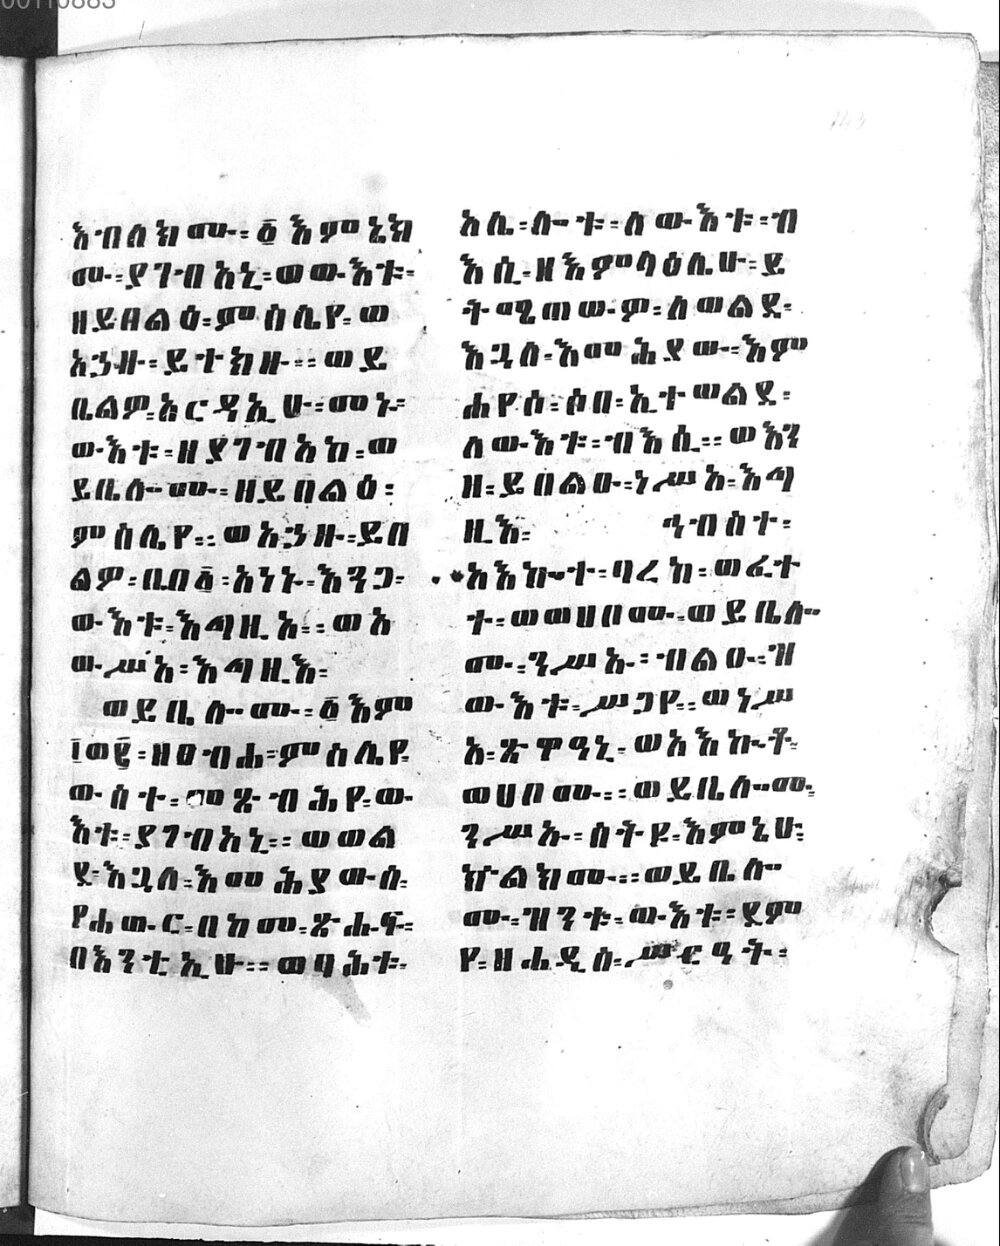 00110883
143
እብለክሙ፡፩እምኔክ
ሙ፡ያገብአኒ፡ወውእቱ፡
ዘይበልዕ፡ምስሌየ፡ወ
አኃዙ፡ይተክዙ፡፡ወይ
ቤልዎ፡አርዳኢሁ፡መኑ፡
ውእቱ፡ዘያገብአከ፡ወ
ይቤሎሙ፡ዘይበልዕ፡
ምስሌየ፡፡ወአኃዙ፡ይበ
ልዎ፡በበ፩፡አነኑ፡እንጋ፡
ውእቱ፡እግዚአ፡፡ወአ
ውሥአ፡እግዚእ፡
ወይቤሎሙ፡፩እም
፲ወ፪፡ዘፀብሐ፡ምስሌየ፡
ውስተ፡መጽብሕየ፡ው
እቱ፡ያገብአኒ፡፡ወወል
ደ፡እጓለ፡እመሕያውሰ፡
የሐውር፡በከመ፡ጽሐፍ፡
በእንቲኢሁ፡፡ወባሕቱ፡
አሌ፡ሎቱ፡ለውእቱ፡ብ
እሲ፡ዘእምላዕሌሁ፡ይ
ትሜጠውም፡ለወልደ፡
እጓለ፡እመሕያው፡፡እም
ሐየሰ፡ሶበ፡ኢተወልደ፡
ለውእቱ፡ብእሲ፡፡ወእን
ዘ፡ይበልዑ፡ነሥአ፡እግ
ዚእ፡ ኅብስተ፡
አእኰተ፡ባረከ፡ወፈተ
ተ፡ወወሀበሙ፡ወይቤሎ
ሙ፡ንሥኡ፡፡ብልዑ፡ዝ
ውእቱ፡ሥጋየ፡፡ወነሥ
አ፡ጽዋዓኒ፡ወአእኰቶ፡
ወሀበሙ፡፡ወይቤሎሙ፡
ንሥኡ፡ስትዩ፡እምኔሁ፡
ኵልክሙ፡፡ወይቤሎ
ሙ፡ዝንቱ፡ውእቱ፡ደም
የ፡ዘሐዲስ፡ሥርዓት፡